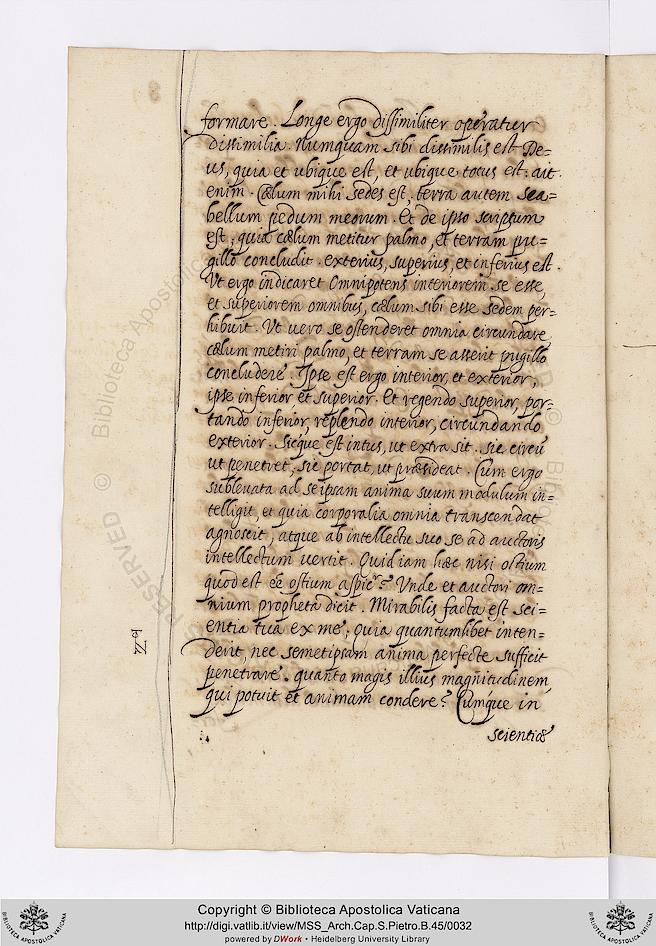 formare. Longe ergo dissimiliter operatur
dissimilia. Numquam sibi dissimilis est De=
us, quia et ubique est, et ubique totus est. ait
enim. Cælum mihi sedes est, terra autem sca=
bellum pedum meorum. Et de ipso scriptum
est, quia cælum metitur palmo, et terram pu=
gillo concludit. exterius, superius, et inferius est.
Ut ergo indicaret Omnipotens interiorem se esse,
et superiorem omnibus, cælum sibi esse sedem per=
hibuit. Ut vero se ostenderet omnia circundare,
cælum metiri palmo, et terram se asserit pugillo
concludere. Ipse est ergo interior, et exterior,
ipse inferior et superior. Et regendo superior, por=
tando inferior, replendo interior, circundando
exterior. Sicque est intus, ut extra sit. sic circũ
ut penetret, sic portat, ut præsideat. Cum ergo
sublevata ad seipsam anima suum modulum in=
telligit, et quia corporalia omnia transcendat
agnoscit, atque ab intellectu suo se ad auctoris
intellectum vertit. Quid iam hæc nisi ostium
quod est ostium aspic.r? Unde et auctori om=
nium propheta dicit. Mirabilis facta est sci=
entia tua ex me, Quia quantumlibet inten=
derit, nec semetipsam anima perfecte sufficit
penetrare. quanto magis illius magnitudinem,
qui potuit et animam condere? Cumque in
scientiæ
Copyright © Biblioteca Apostolica Vaticana
http://digi.vatlib.it/view/MSS_Arch.Cap.S.Pietro.B.45/0032
powered by DWork • Heidelberg University Library